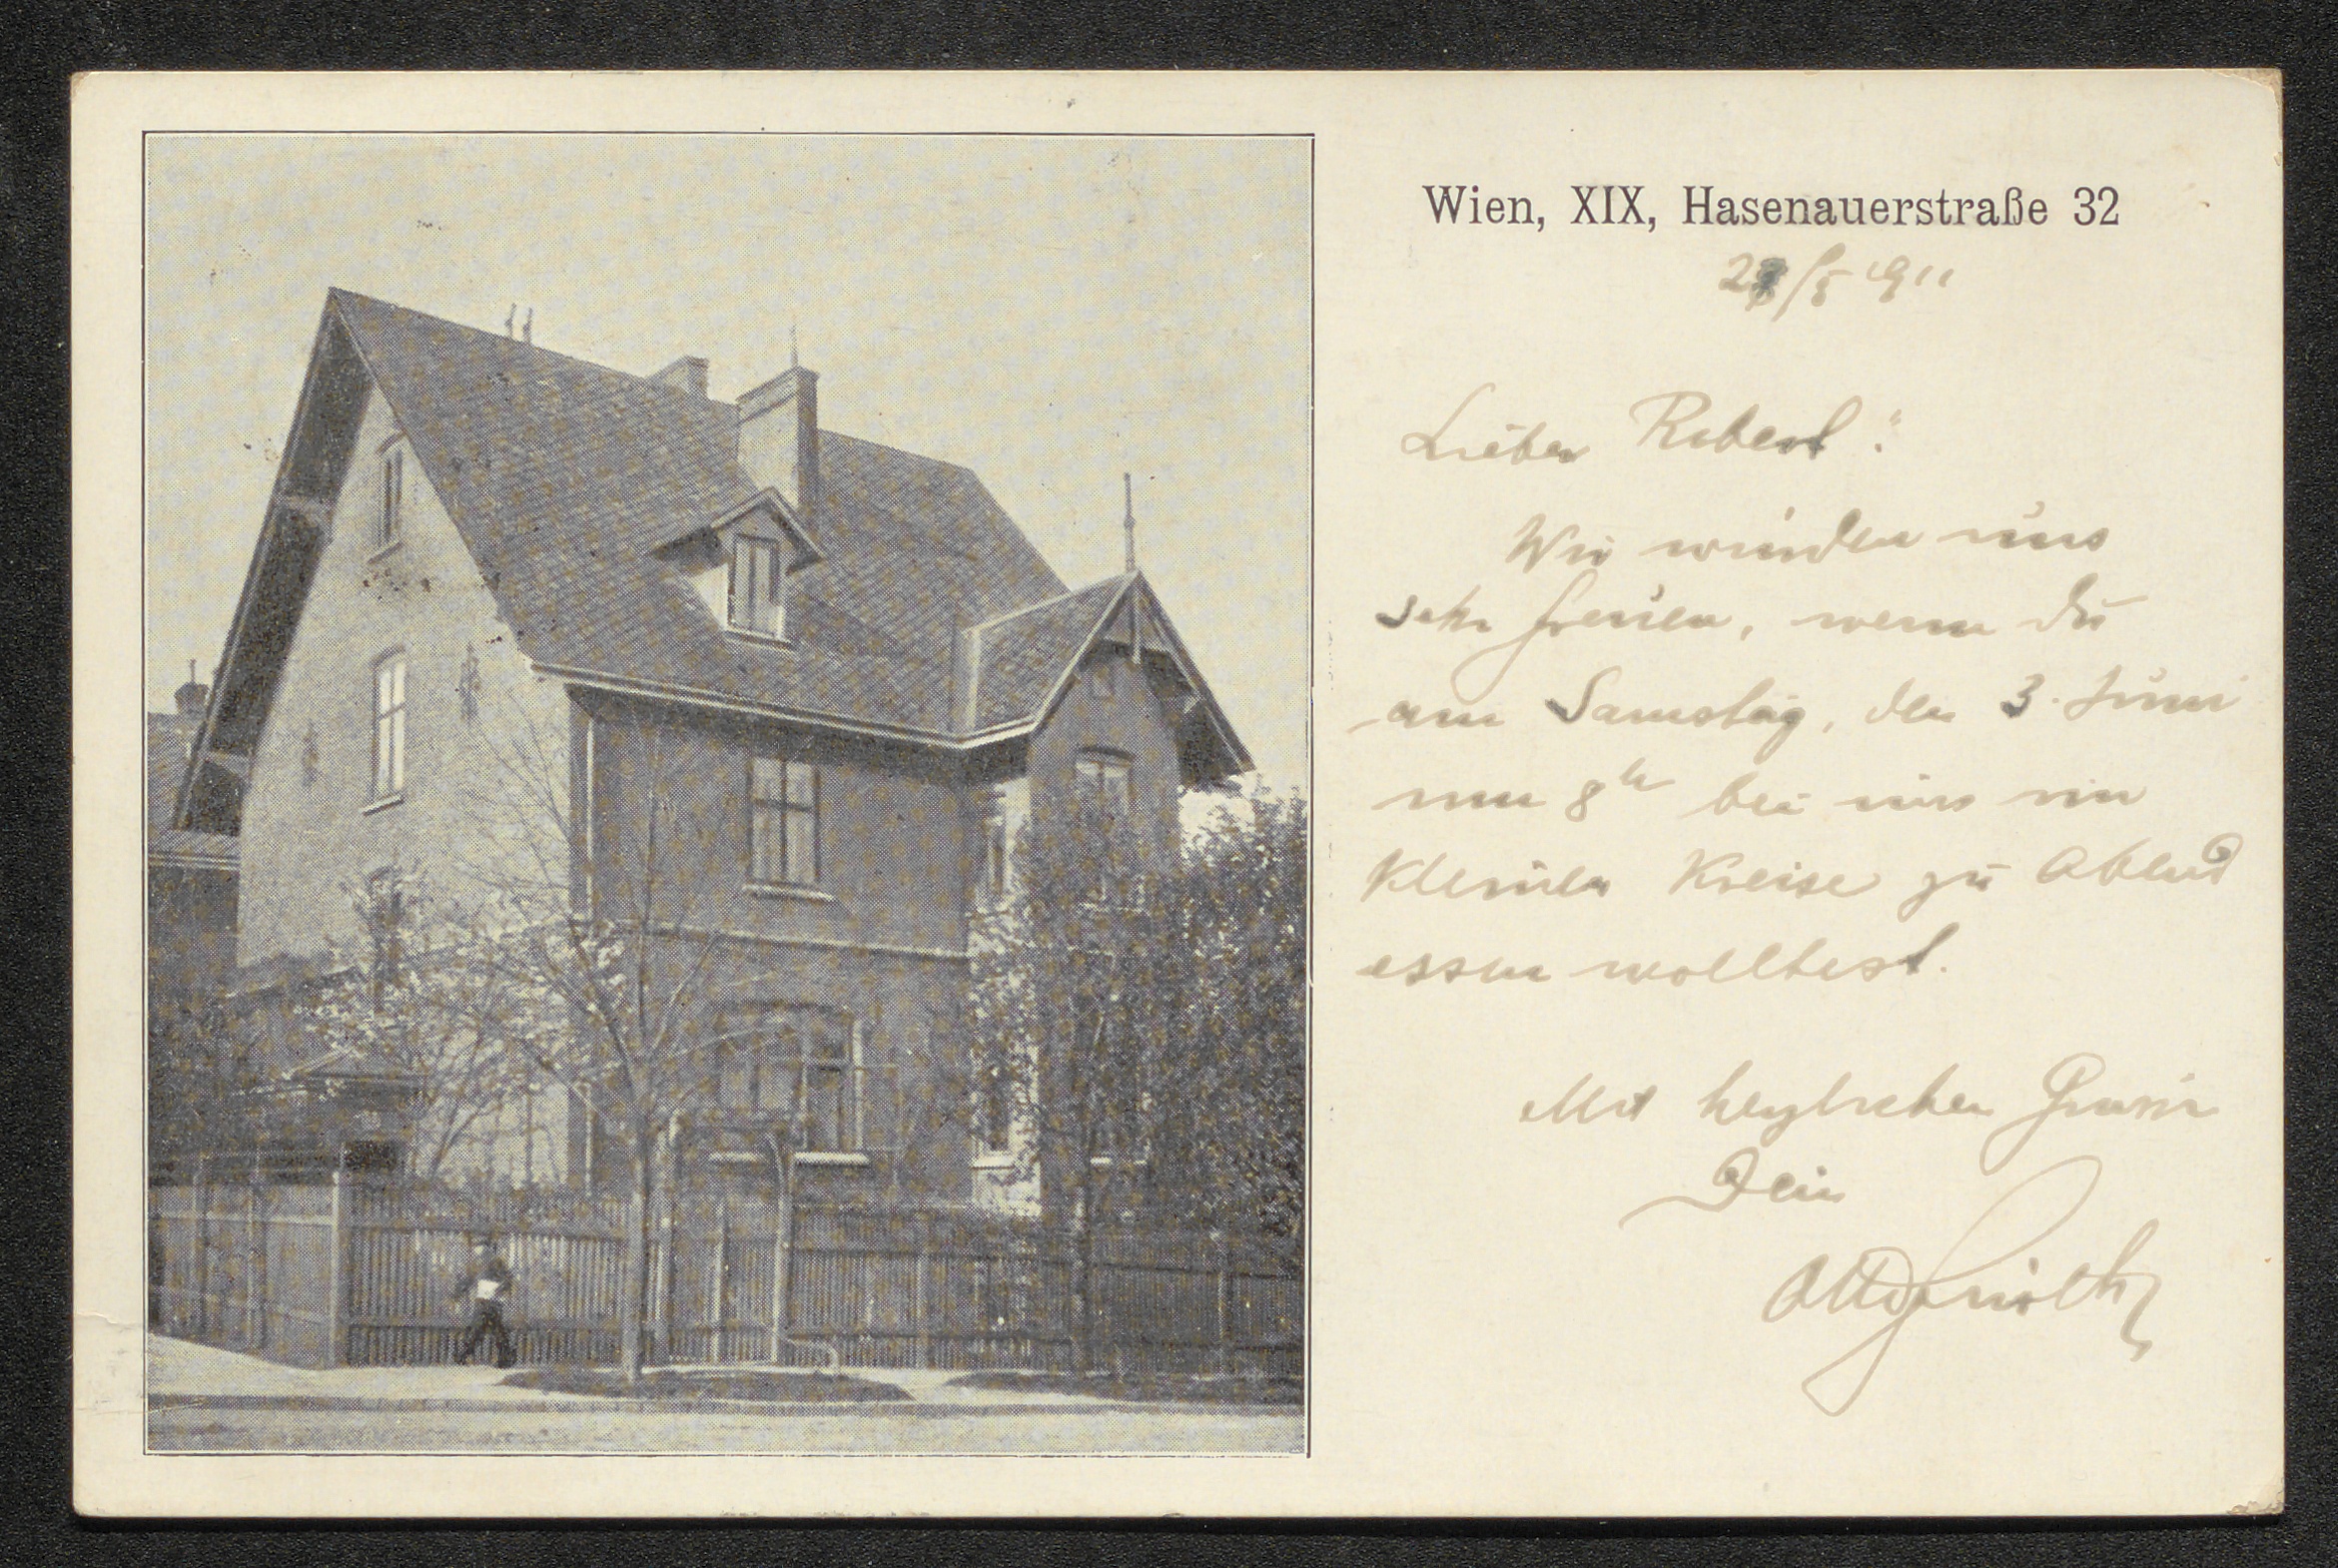 Wien, XIX, Hasenauerstraße 32
27/5 1911
Lieber Robert!
Wir würden uns
sehr freuen, wenn Du
am Samstag, den 3. Juni
um 8h bei uns im
kleinen Kreise zu Abend
essen wolltest.
Mit herzlichen Grüssen
Dein